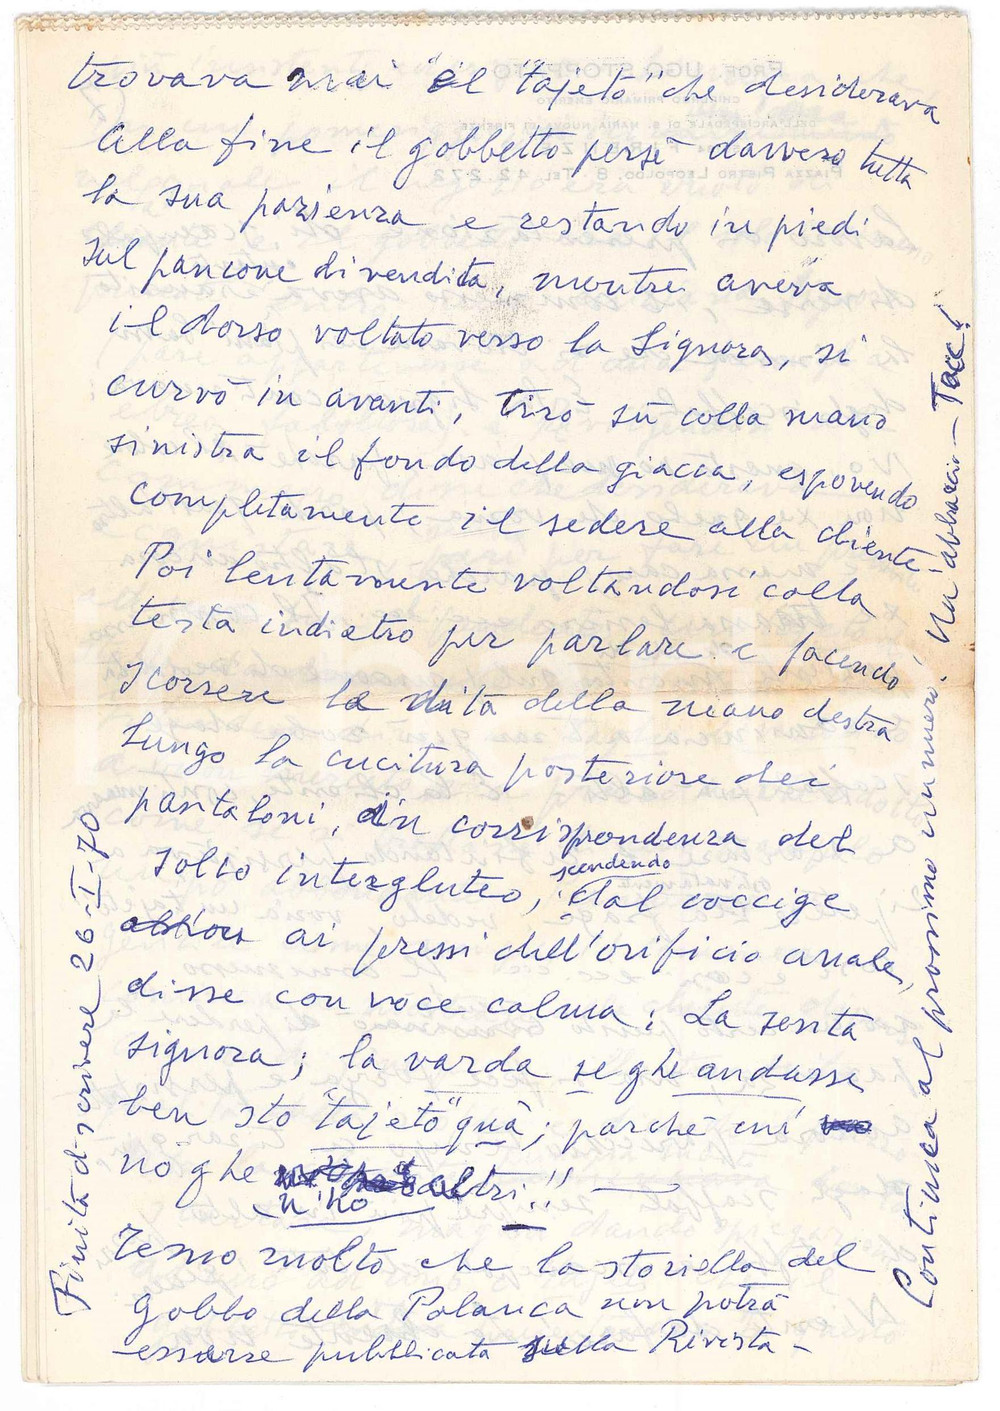 trovava mai "il "tajeto" che desiderava
Alla fine il gobbetto perse davvero tutta
la sua pazienza e restando in piedi
sul pancone di vendita, mentre aveva
il dorso voltato verso la Signora, si
curvò in avanti, tirò sù colla mano
sinistra il fondo della giacca, esponendo
completamente il sedere alla cliente.
Poi lentamente voltandosi colla
testa indietro per parlare e facendo
scorrere le dita della mano destra
lungo la cucitura posteriore dei
pantaloni, in corrispondenza del
solco intergluteo, scendendo dal coccige
ai pressi dell'orifizio anale,
disse con voce calma: La senta
signora; la varda se ghe andasse
ben sto "tajeto" quà; parchè mi
no ghe n'ho altri!!
Temo molto che la storiella del
Gobbo della Palanca non potrà
essere pubblicata sulla Rivista -
Finito di scrivere 26-I-70
Continua al prossimo numero. Un abbraccio - Tace!
PROF. UGO STOPPATO
CHIRURGO PRIMARIO EMERITO
DELL'ARCISPEDALE DI S. MARIA NUOVA DI FIRENZE
FIRENZE
PIAZZA PIETRO LEOPOLDO, 8 - TEL. 42.272